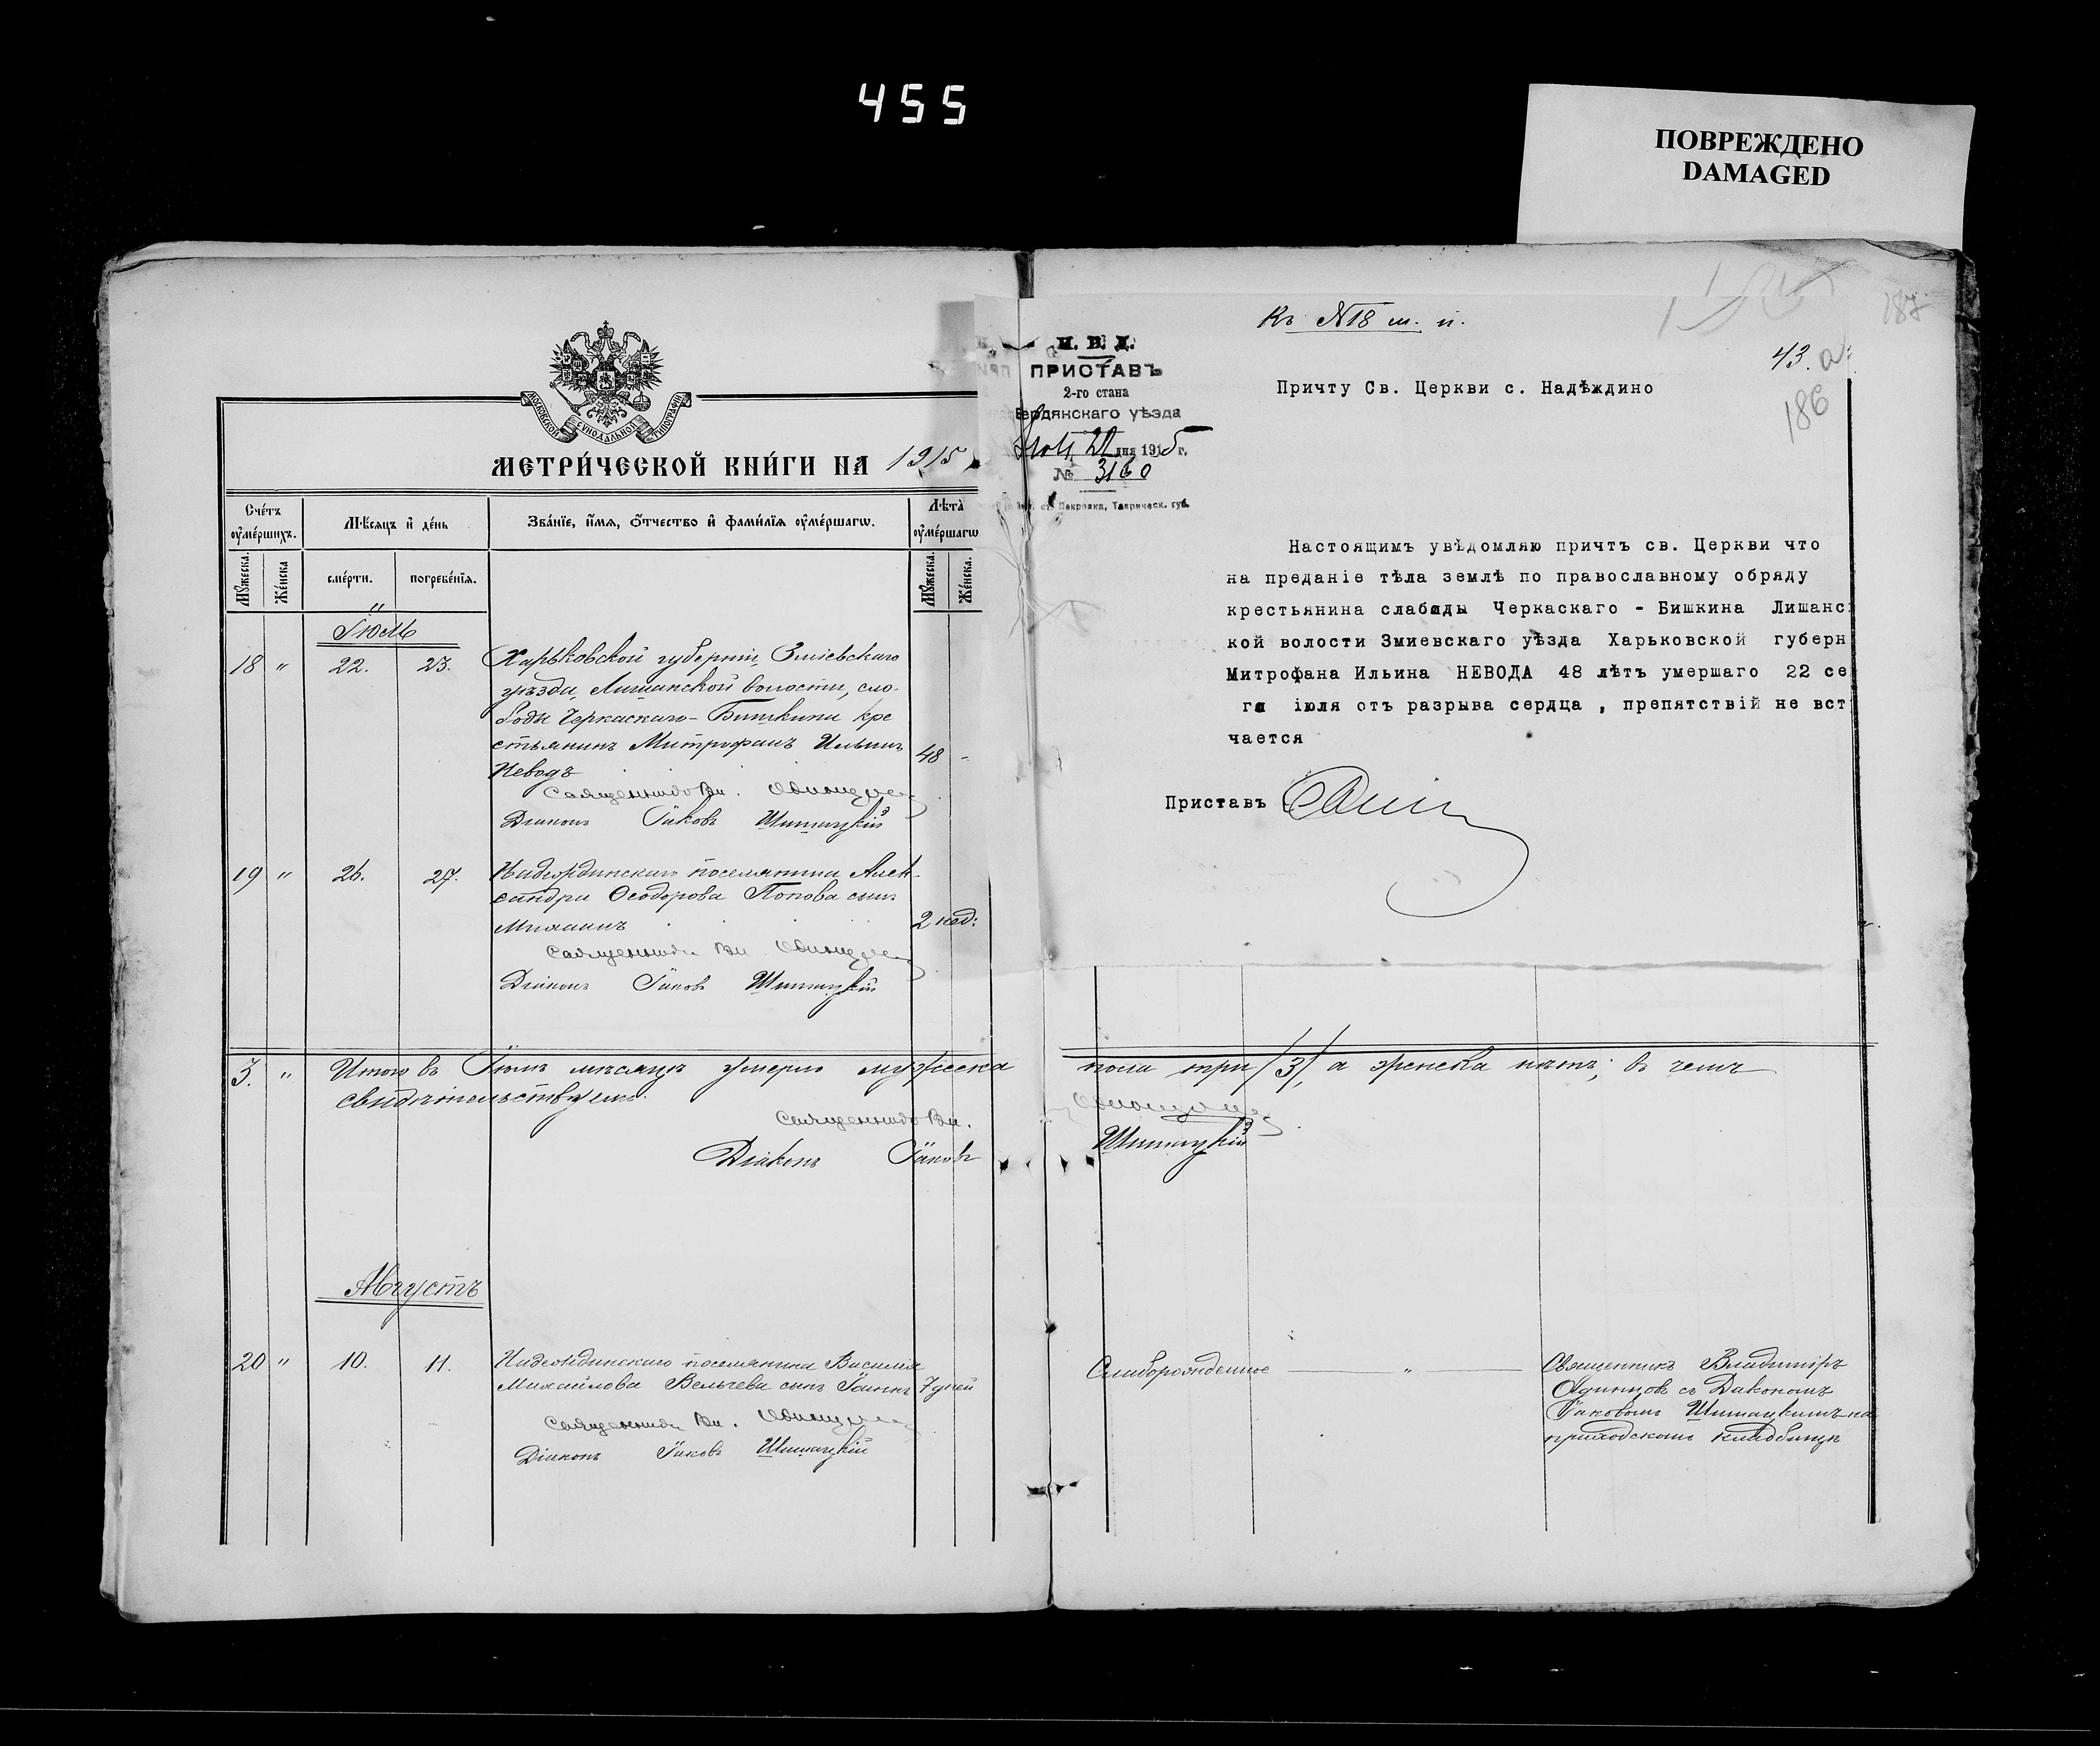 455
ПОВРЕЖДЕНО
DAMAGED
МОСКОВСКОЙ СУНОДАЛЬНОЙ ТИПОГРАФІИ
МЕТРИ́ЧЕСКОЙ КНИ́ГИ НА 1915
Сче́тъ ᲂу҆ме́ршихъ.
Мѣ́сяцъ и҆ де́нь
Зва́нїе, и҆́мя, ѻ҆́тчество и҆ фами́лїя ᲂу҆ме́ршагѡ.
Лѣ́та ᲂу҆ме́ршагѡ
Мꙋ́жеска.
Же́нска
сме́рти.
погребе́нїя.
Мꙋ́жеска.
Же́нска.
Іюль
18 " 22. 23. Харьковской губерніи, Зміевскаго
уѣзда, Лиманской волости, сло-
боды Черкаскаго-Бишкина кре
стьянинъ Митрофанъ Ильинъ 48 -
Неводъ
Священникъ Вл. Одинцов
Діаконъ Іаковъ Шишацкій
19 " 26. 27. Надеждинскаго поселянина Алек-
сандра Ѳеодорова Попова сынъ
Михаилъ 2 нед:
Священникъ Вл. Одинцов
Діаконъ Іаковъ Шишацкій
3. " Итого въ Іюлѣ мѣсяцѣ умерло мужеска пола три /3/, а женска нѣтъ; въ чемъ
свидѣтельствуемъ.
Священникъ Вл. Одинцов
Діаконъ Іаковъ Шишацкій
Августъ
20 " 10. 11. Надеждинскаго поселянина Василія
Михайлова Вельчева сынъ Іоаннъ 7 дней
Священникъ Вл. Одинцов
Діаконъ Іаковъ Шишацкій
Слаборожденное "
Священникъ Владиміръ
Одинцовъ съ Діакономъ
Іаковомъ Шишацкимъ на
приходскомъ кладбищѣ
Къ №18 м. п.
187
43. а
186
М. В. Д.
ПРИСТАВЪ
2-го стана
Бердянскаго уѣзда
дня 1915 г.
№ 3160
Покровка, Таврическ. губ.
Причту Св. Церкви с. Надѣждино
Настоящимъ увѣдомляю причтъ св. Церкви что
на преданіе тѣла землѣ по православному обряду
крестьянина слабоды Черкаскаго - Бишкина Лишанс
кой волости Змиевскаго уѣзда Харьковской губерн
Митрофана Ильина НЕВОДА 48 лѣтъ умершаго 22 се
го іюля отъ разрыва сердца , препятствій не вст
чается
Приставъ